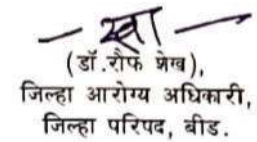 - स्वा -
(डॉ.रौफ शेख),
जिल्हा आरोग्य अधिकारी,
जिल्हा परिषद, बीड.